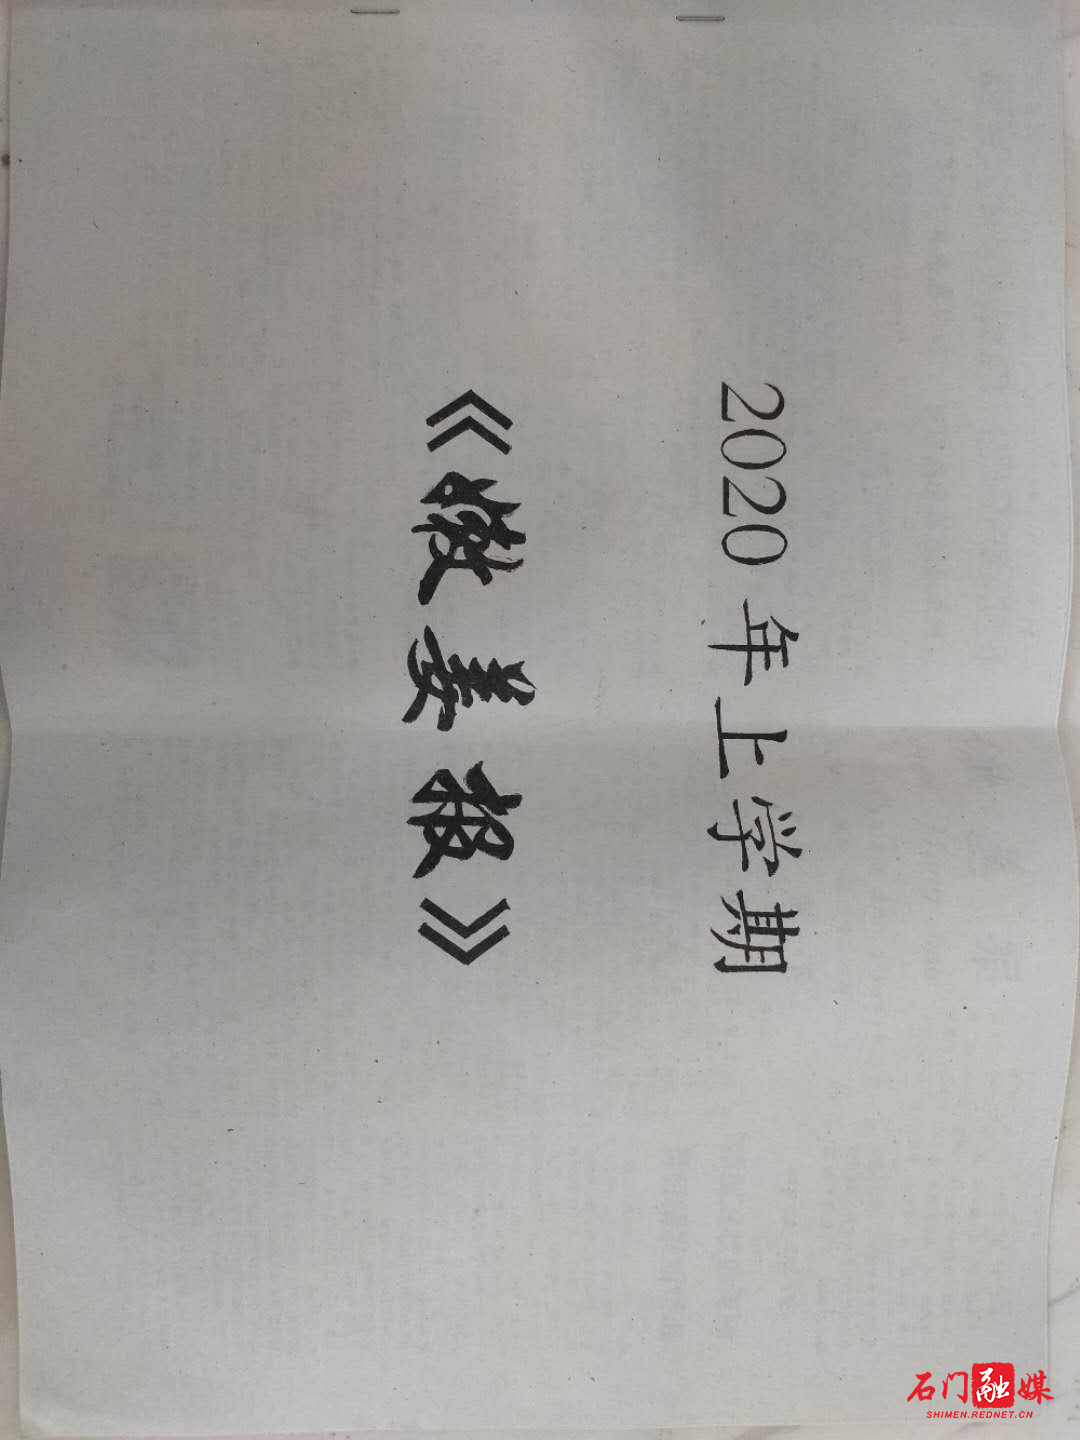 2020 年上学期
《嫩姜报》
石门融媒
SHIMEN.REDNET.CN